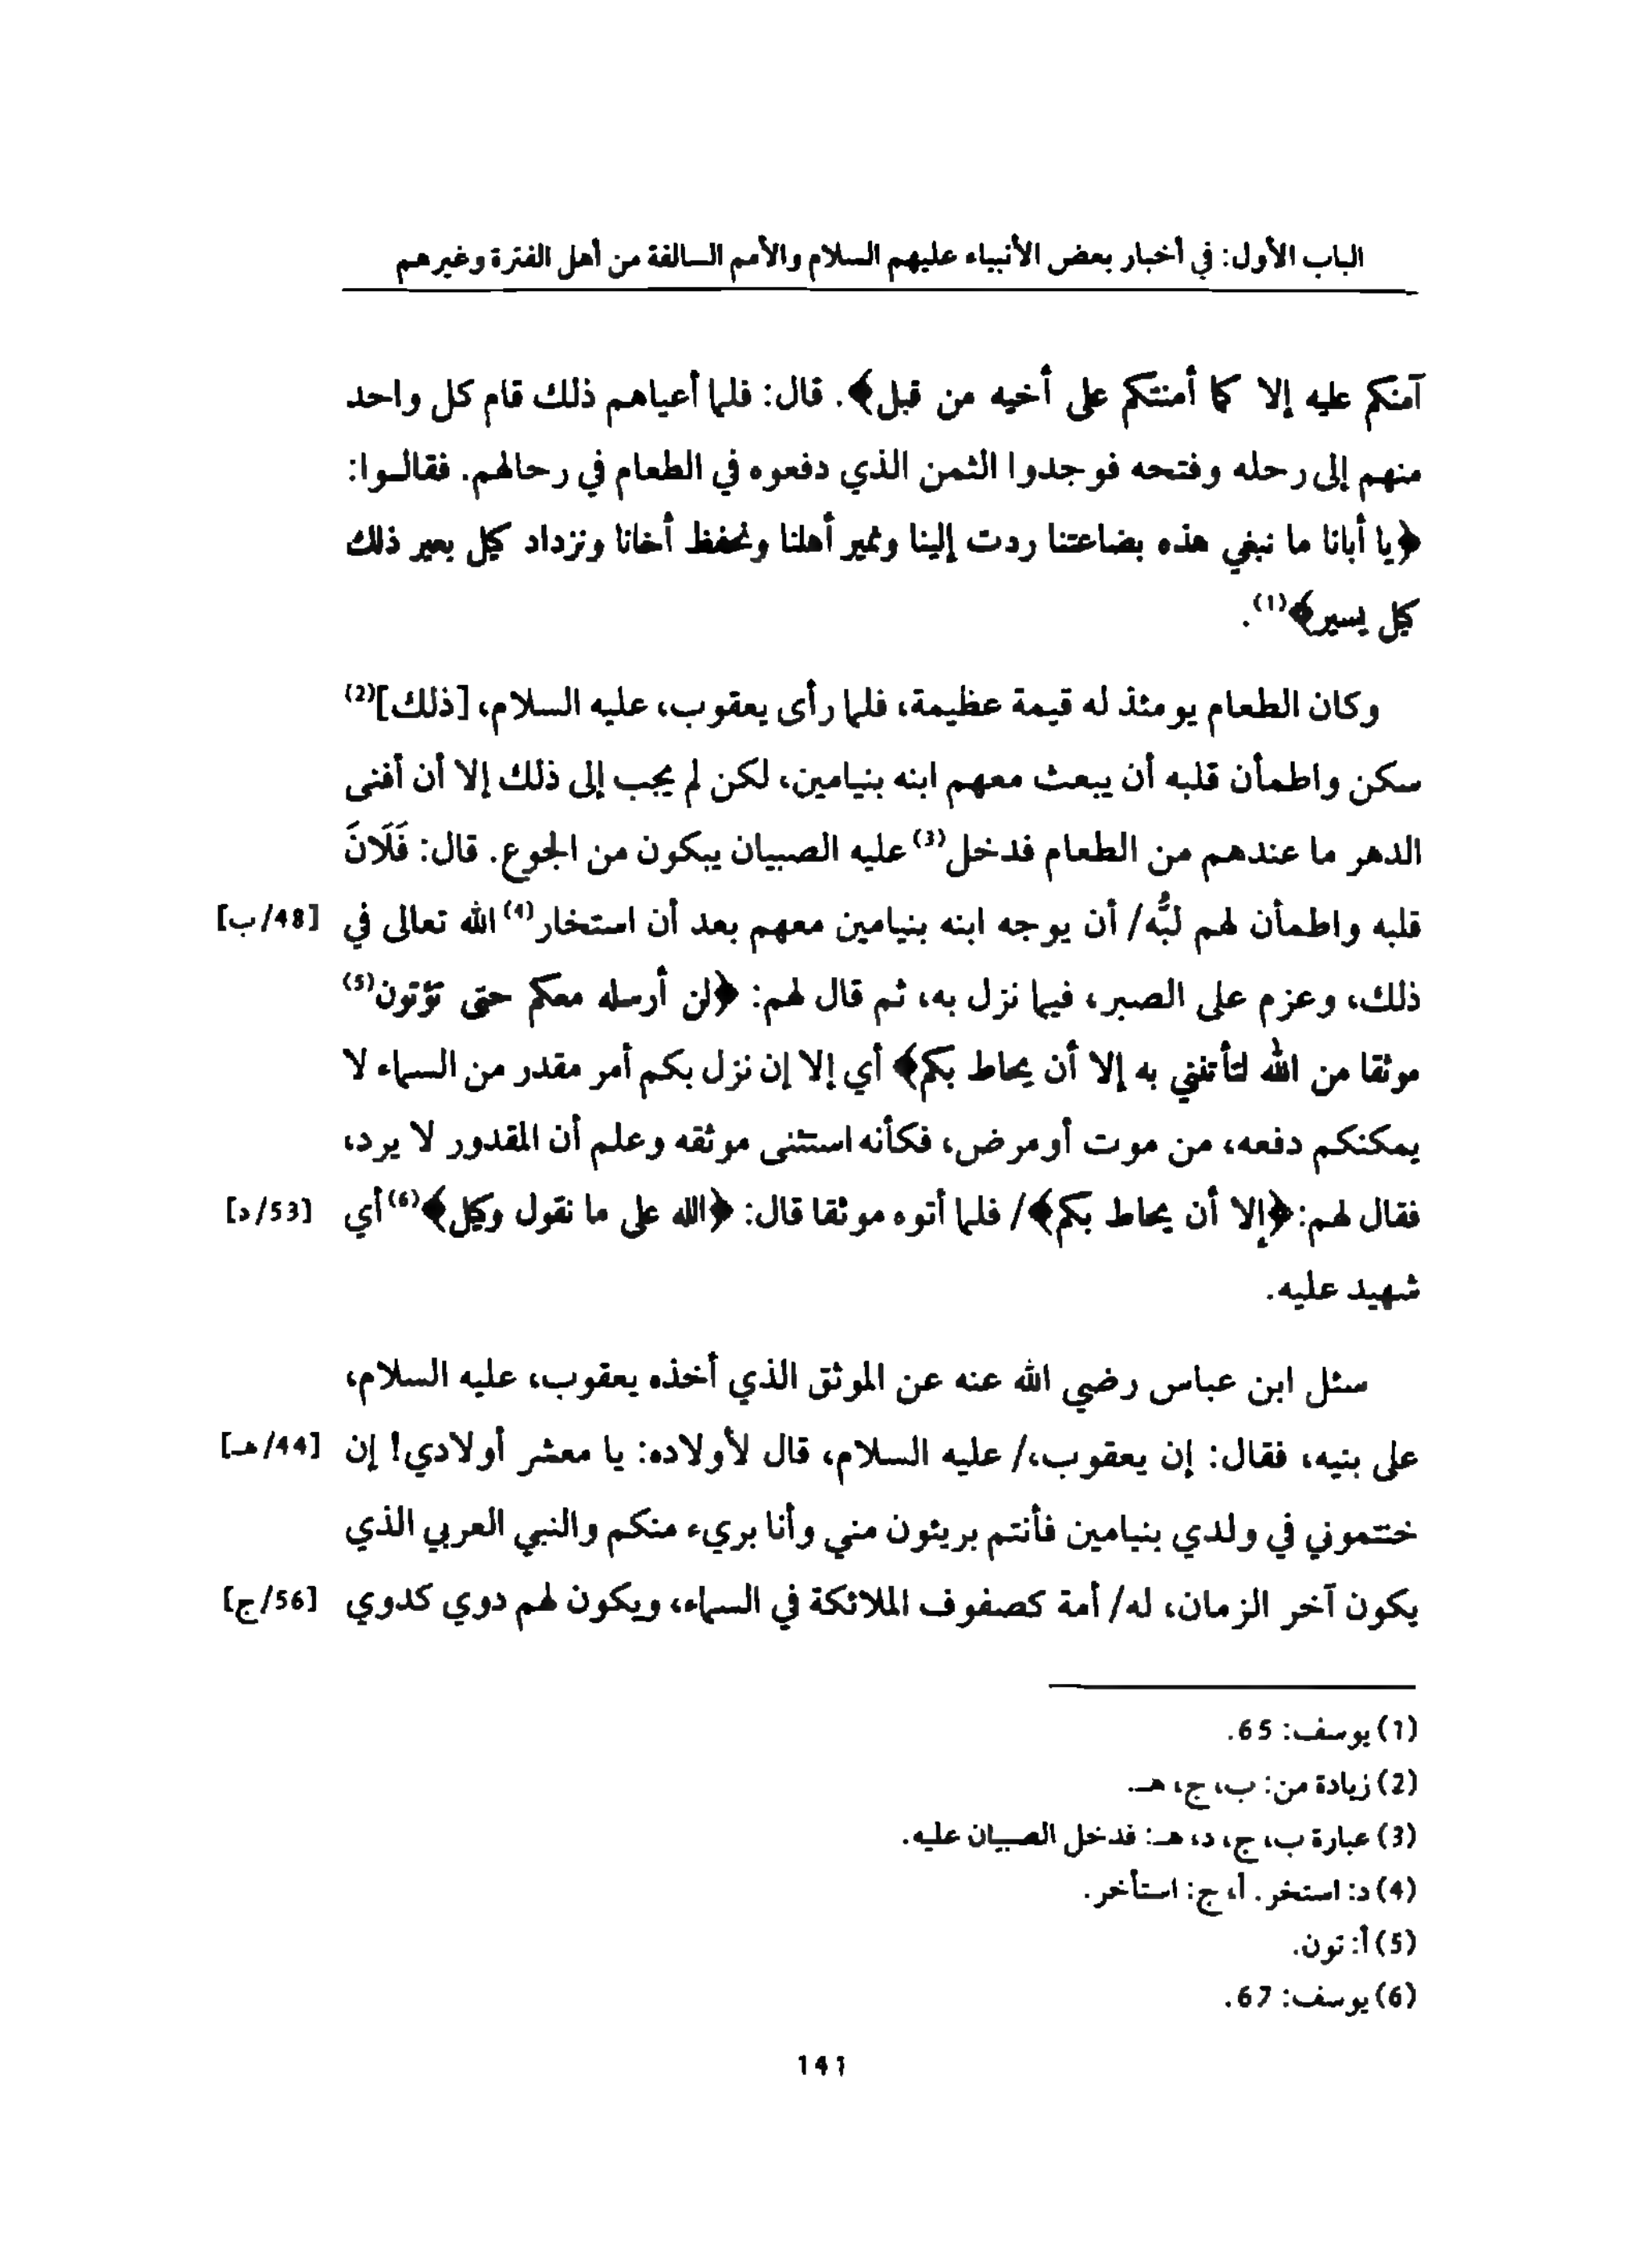 الباب الأول: في أخبار بعض الأنبياء عليهم السلام والأمم السالفة من أهل الفترة وغيرهم
آمنكم عليه إلا كما أمنتكم على أخيه من قبل﴾. قال: فلما أعياهم ذلك قام كل واحد
منهم إلى رحله وفتحه فوجدوا الثمن الذي دفعوه في الطعام في رحالهم. فقالوا:
﴿يا أبانا ما نبغي هذه بضاعتنا ردت إلينا ونمير أهلنا ونحفظ أخانا ونزداد كيل بعير ذلك
كيل يسير﴾(1).
وكان الطعام يومئذ له قيمة عظيمة، فلما رأى يعقوب، عليه السلام، [ذلك](2)
سكن واطمأن قلبه أن يبعث معهم ابنه بنيامين، لكن لم يجب إلى ذلك إلا أن أفنى
الدهر ما عندهم من الطعام فدخل(3) عليه الصبيان يبكون من الجوع. قال: فَلَانَ
قلبه واطمأن لهم لبُّه/ أن يوجه ابنه بنيامين معهم بعد أن استخار(4) الله تعالى في [48/ب]
ذلك، وعزم على الصبر، فيما نزل به، ثم قال لهم: ﴿لن أرسله معكم حتى تؤتون(5)
موثقا من الله لتأتنني به إلا أن يحاط بكم﴾ أي إلا إن نزل بكم أمر مقدر من السماء لا
يمكنكم دفعه، من موت أو مرض، فكأنه استثنى موثقه وعلم أن المقدور لا يرد،
فقال لهم: ﴿إلا أن يحاط بكم﴾/ فلما أتوه موثقا قال: ﴿الله على ما نقول وكيل﴾(6) أي [53/د]
شهيد عليه.
سئل ابن عباس رضي الله عنه عن الموثق الذي أخذه يعقوب، عليه السلام،
على بنيه، فقال: إن يعقوب،/ عليه السلام، قال لأولاده: يا معشر أولادي! إن [44/هـ]
ختتموني في ولدي بنيامين فأنتم بريئون مني وأنا بريء منكم والنبي العربي الذي
يكون آخر الزمان، له/ أمة كصفوف الملائكة في السماء، ويكون لهم دوي كدوي [56/ج]
(1) يوسف: 65.
(2) زيادة من: ب، ج، هـ.
(3) عبارة ب، ج، د، هـ: فدخل الصبيان عليه.
(4) د: استخر. أ، ج: استأخر.
(5) أ: تون.
(6) يوسف: 67.
141